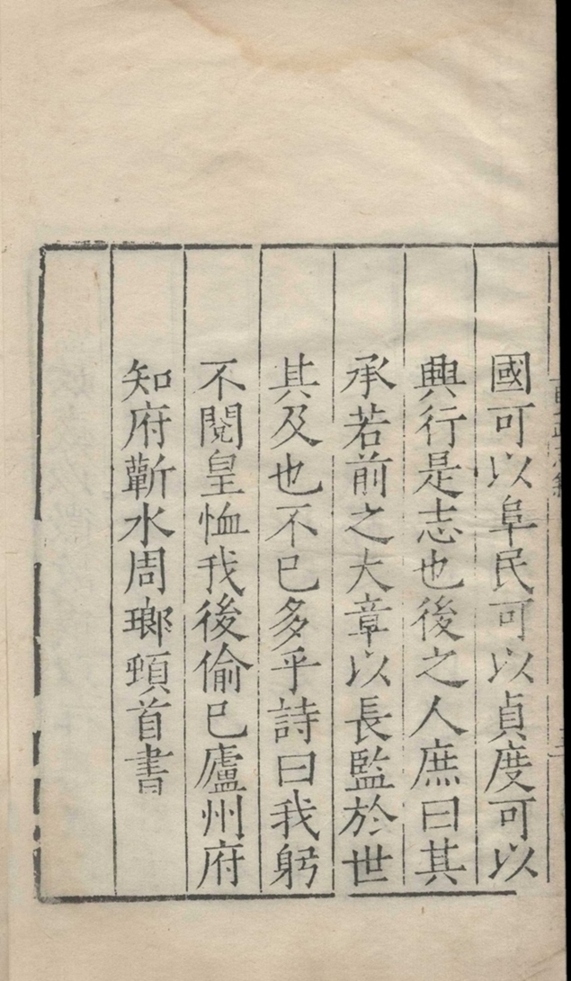 國可以阜民可以貞度可以
興行是志也後之人庶曰其
承若前之大章以長監於世
其及也不已多乎詩曰我躬
不閱皇恤我後偷已廬州府
知府蘄水周瑯頓首書